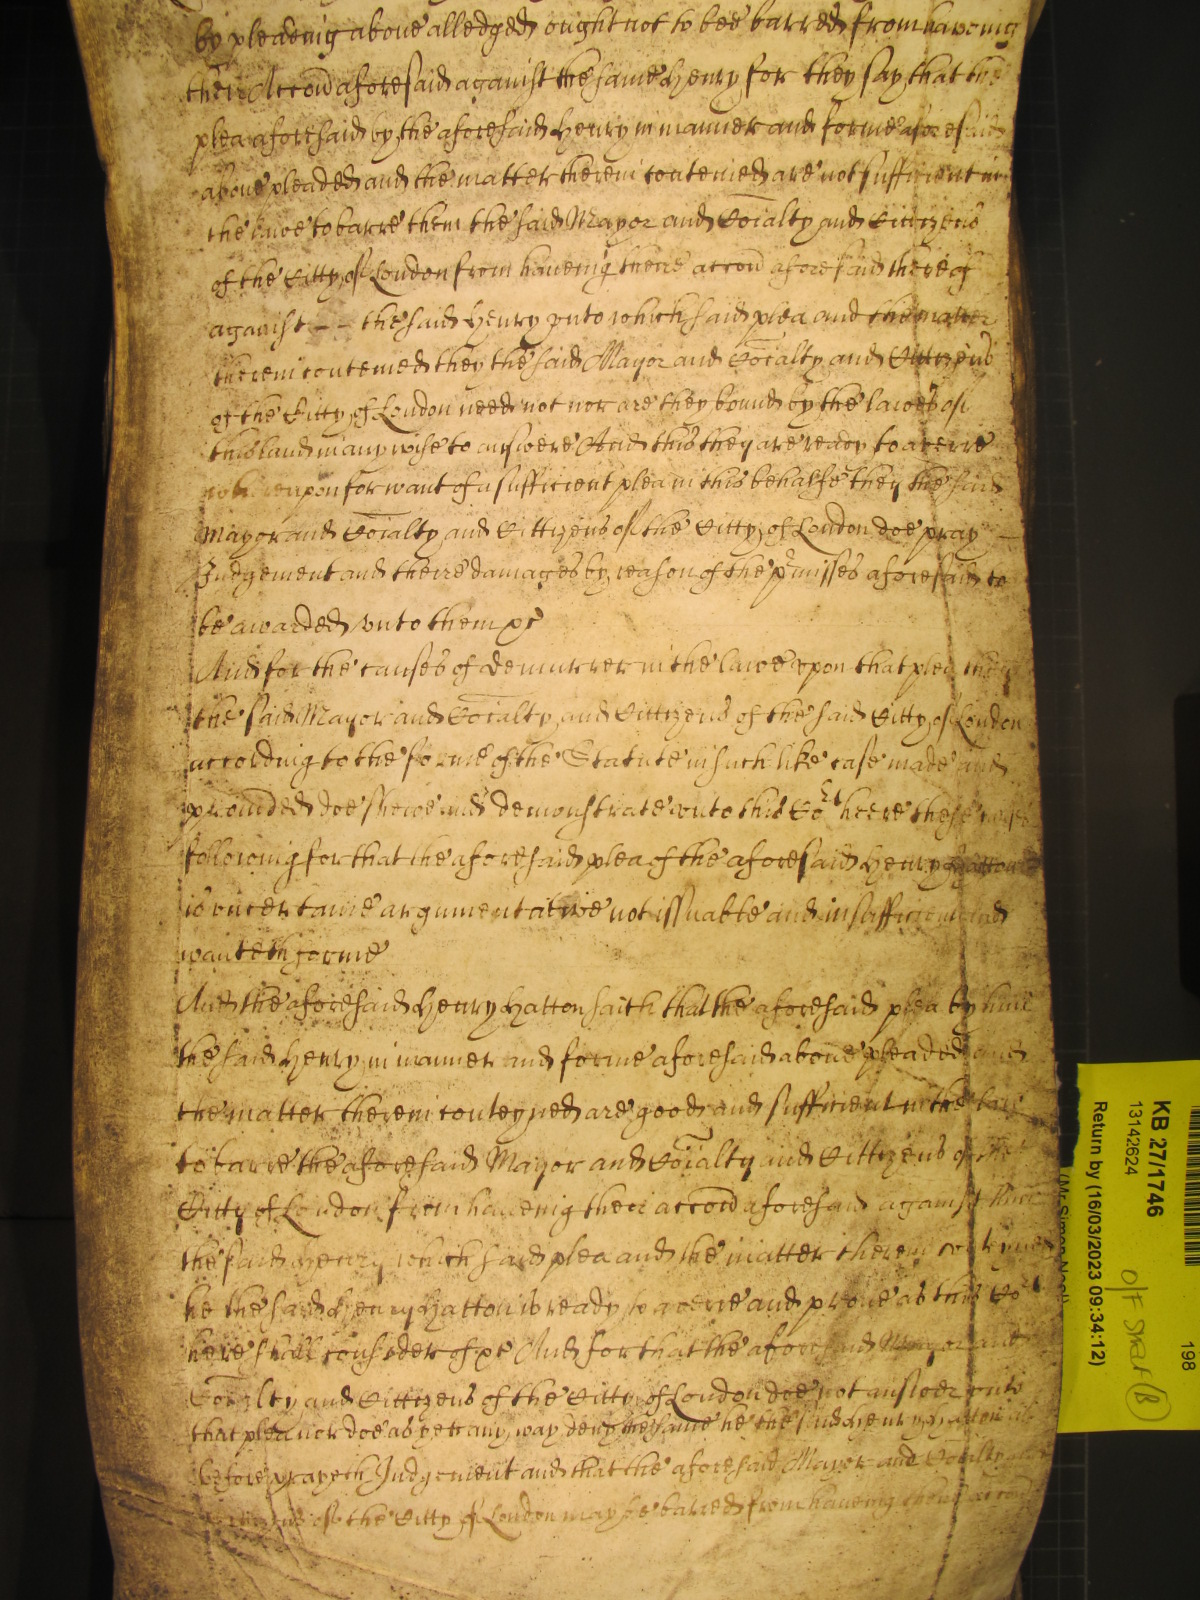 by pleadeing above alledged ought not to bee barred from haveing
their Accōn aforesaid against the same Henry for they say that the
plea aforesaid by the aforesaid Henry in manner and forme aforesaid
above pleaded and the matter therein conteined are not sufficient in
the lawe to barre them the said Mayor and Coīalty and Cittizens
of the Citty of London from haveing theire accōn aforesaid thereof
against - - the said Henry vnto which said plea and the matter
therein conteined they the said Mayor and Coīalty and Cittizens
of the Citty of London need not nor are they bound by the lawes of
this land in any wise to answere And this they are ready to averre
wherevpon for want of a sufficient plea in this behalfe they the said
Mayor and Coīalty and Cittizens of the Citty of London doe pray
Judgement and theire damages by reason of the pͬmisses aforesaid to
be awarded vnto them &c
And for the causes of demurrer in the lawe vpon that plea they
the said Mayor and Coīalty and Cittizens of the said Citty of London
according to the forme of the Statute in such like case made and
provided doe shewe and demonstrate vnto this Coʳᵗ heere these causes
following for that the aforesaid plea of the aforesaid Henry Hatton
is vncertaine argumentative not issuable and insufficient and
wanteth forme
And the aforesaid Henry Hatton saith that the aforesaid plea by him
the said Henry in manner and forme aforesaid above pleaded and
the matter therein conteyned are good and sufficient in the law
to barre the aforesaid Mayor and Coīalty and Cittizens of the
Citty of London from haveing their accōn aforesaid against him
the said Henry which said plea and the matter therein conteyned
he the said Henry Hatton is ready to averre and prove as this Coʳᵗ
here shall consider of &c And for that the aforesaid Mayor and
Coīalty and Cittizens of the Citty of London doe not answer vnto
that plea nor doe as yet any way deny the same he the said Henry Hatton as
before prayeth Judgement and that the aforesaid Mayor and Coīalty and
Cittizens of the Citty of London may be barred from haveing their accōn
198
KB 27/1746
13142624
O/F Street (B)
Return by (16/03/2023 09:34:12)
(Mr Simon Neal)